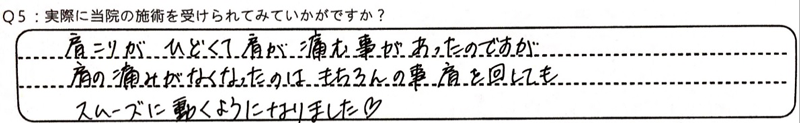 Q5：実際に当院の施術を受けられてみていかがですか？
肩こりが ひどくて肩が 痛む事があったのですが
肩の痛みがなくなったのは もちろんの事 肩を回しても
スムーズに動くようになりました♡